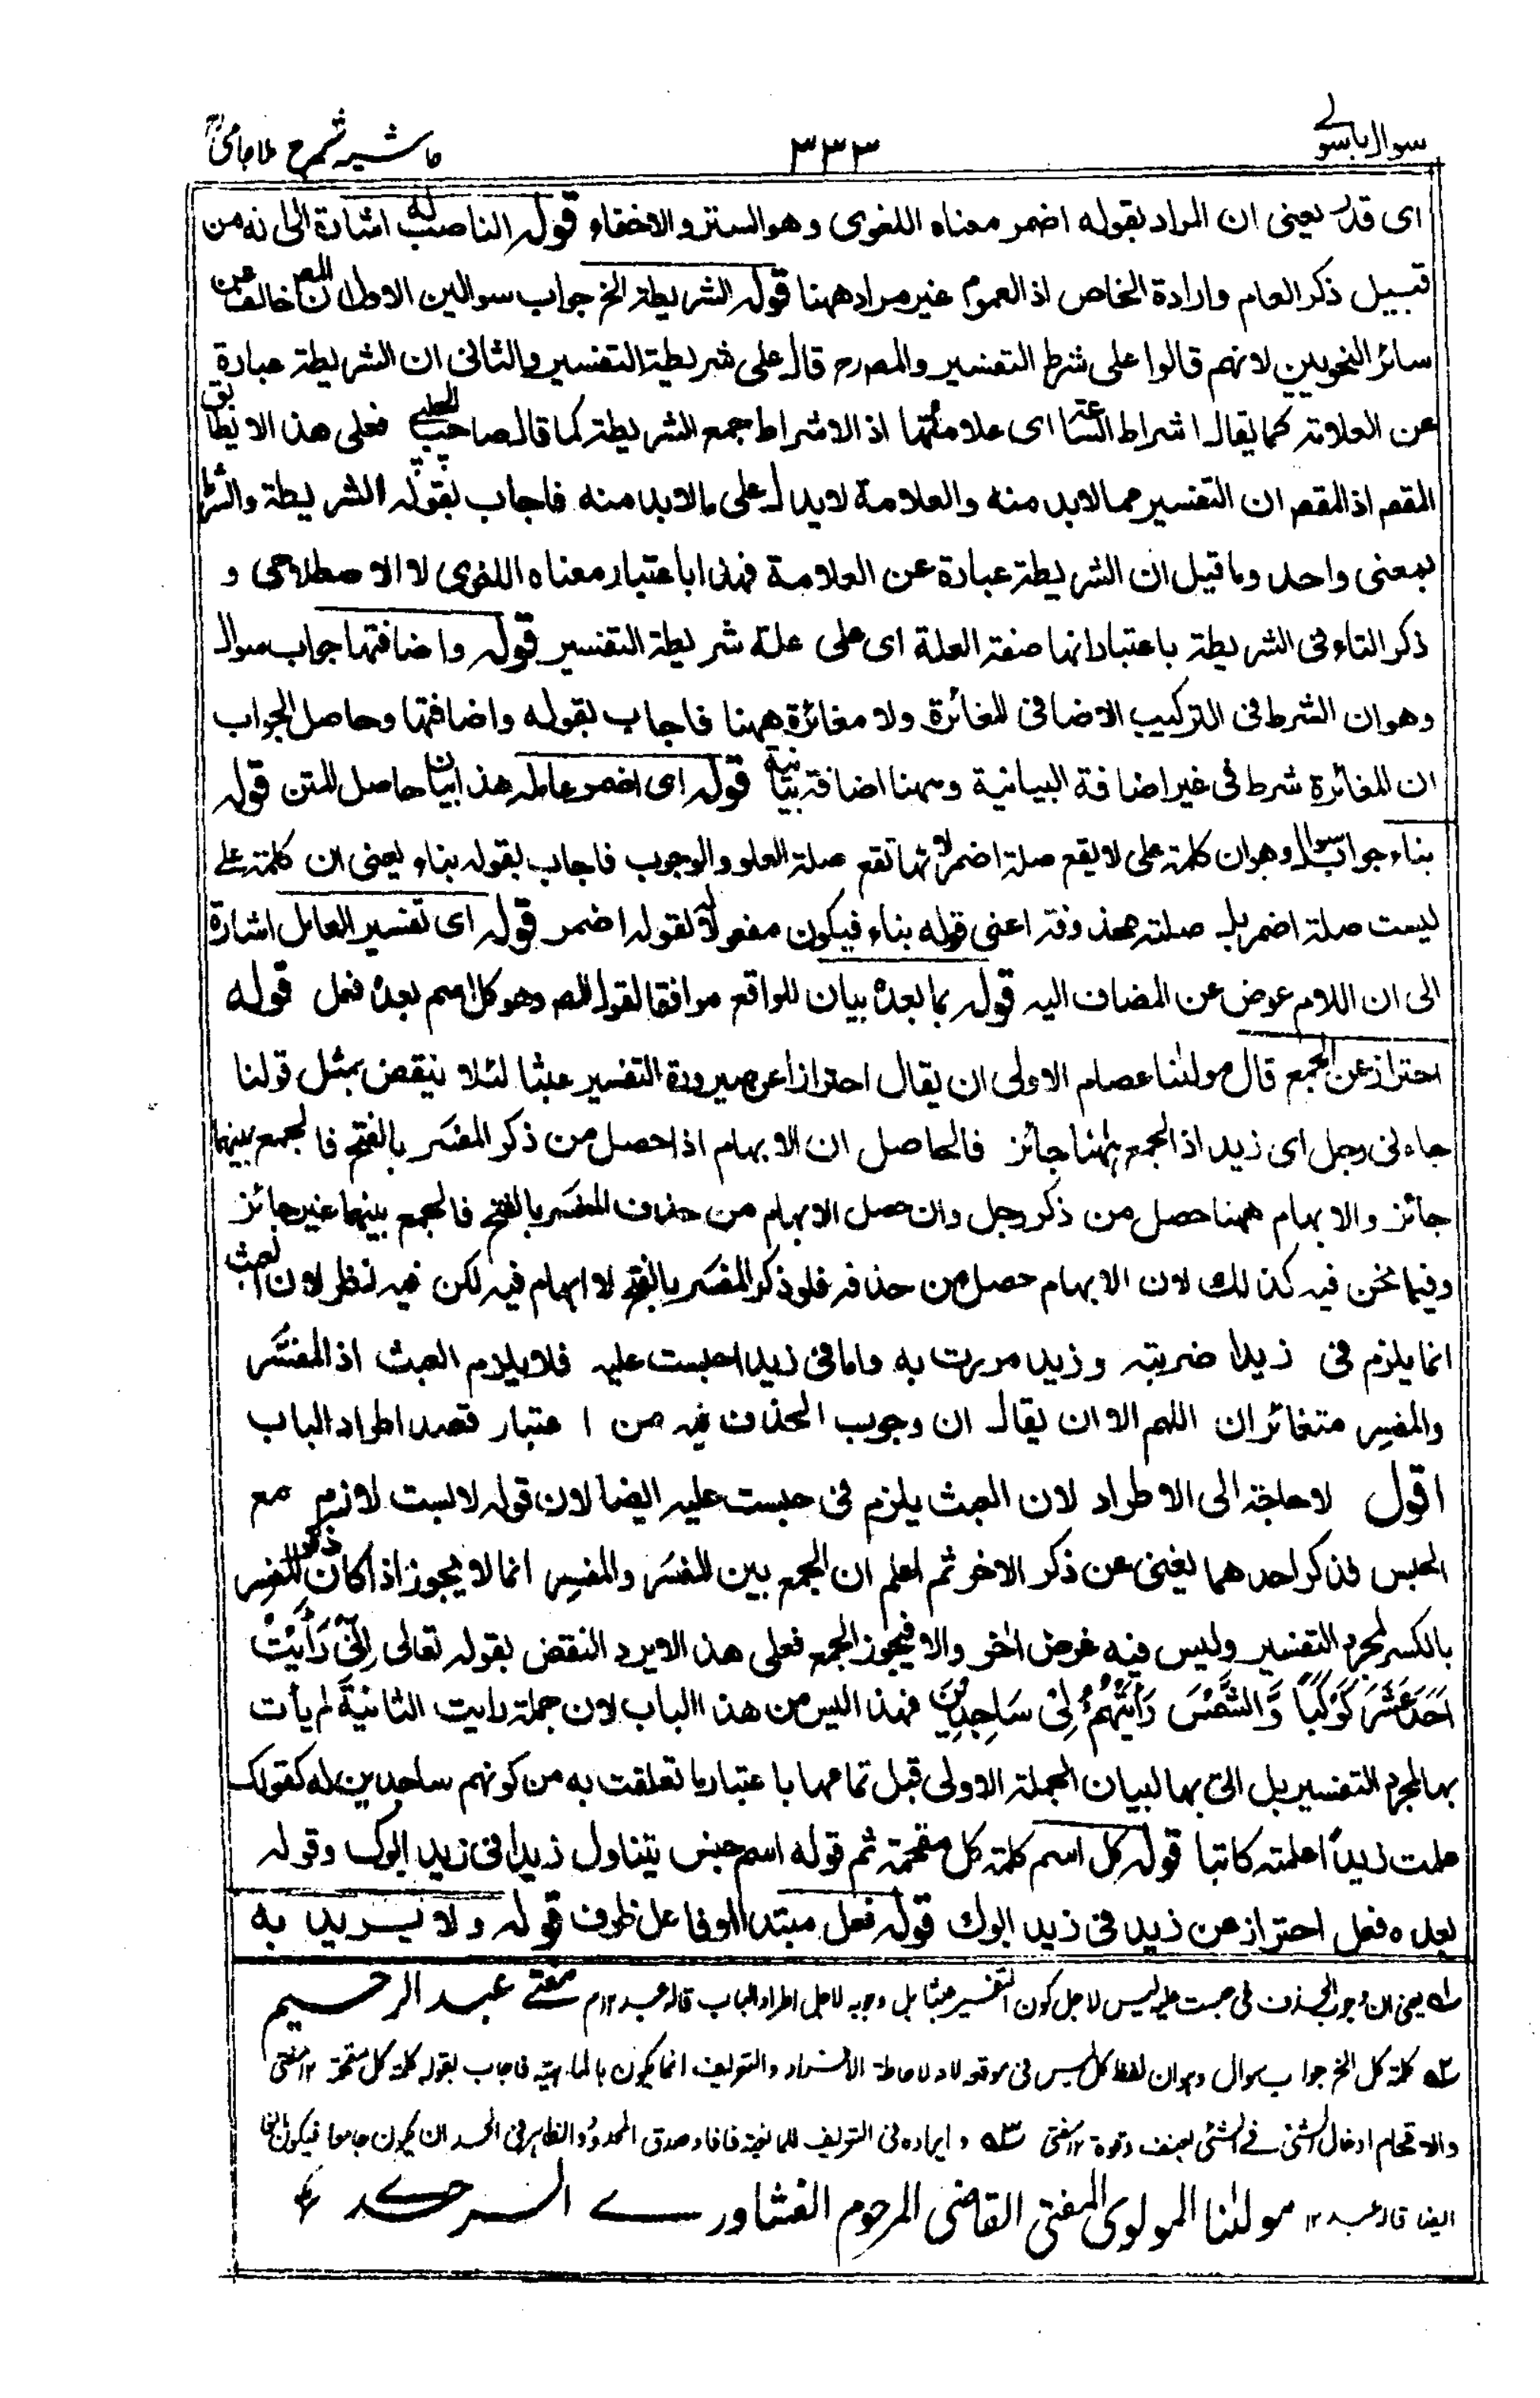 سوال باسولی ۳۳۳ حاشیه شرح ملا جامی
ای قدر یعنی ان المراد بقوله اضمر معناه اللغوی وهو الستر والاخفاء قوله الناصب له اشارة الی انه من
قبیل ذکر العام وارادة الخاص اذ العموم غیر مراد ههنا قوله الشریطة الخ جواب سوالین الاول ان المصر خالف عن
سائر النحویین لانهم قالوا علی شرط التفسیر والمصرح قال علی شریطة التفسیر والثانی ان الشریطة عبارة
عن العلامة کما یقال اشراط الساعة ای علاماتها اذ الاشراط جمع الشریطة کما قال صاحب فعلی هذا لا ینطابق
المقص اذ المقص ان التفسیر مما لابد منه والعلامة لا یدل علی ما لابد منه فاجاب بقوله الشریطة والشرط
بمعنی واحد وما قیل ان الشریطة عبارة عن العلامة فهذا باعتبار معناه اللغوی لا الاصطلاحی و
ذکر التاء فی الشریطة باعتبار انها صفة العلة ای علی علة شریطة التفسیر قوله واضافتها جواب سوال
وهو ان الشرط فی الترکیب الاضافی المغائرة ولا مغائرة ههنا فاجاب بقوله واضافتها وحاصل الجواب
ان المغائرة شرط فی غیر اضافة البیانیة وههنا اضافة بیانیة قوله ای اضمر عامله هذا بیان حاصل المتن قوله
بناء جواب سوال وهو ان کلمة علی لا یقع صلة اضمر لانها تقع صلة العلو والوجوب فاجاب بقوله بناء یعنی ان کلمة علی
لیست صلة اضمر بل صلته محذوفة اعنی قوله بناء فیکون مفعولا له لقوله اضمر قوله ای تفسیر العامل اشارة
الی ان اللام عوض عن المضاف الیه قوله بما بعده بیان للواقع موافقا لقول المصر وهو کل اسم بعده فعل قوله
احتراز عن الجمع قال مولٰنا عصام الاولی ان یقال احترازا عن صیرورة التفسیر عبثا لئلا ینقض بمثل قولنا
جاءنی رجل ای زید اذ الجمع ههنا جائز فالحاصل ان الابهام اذا حصل من ذکر المفسَر بالفتح فالجمع بینهما
جائز والابهام ههنا حصل من ذکر رجل وان حصل الابهام من حذف المفسَر بالفتح فالجمع بینهما غیر جائز
وفیما نحن فیه کذلک لان الابهام حصل من حذفه فلو ذکر المفسَر بالفتح لا ابهام فیه لکن فیه نظر لان العبث
انما یلزم فی زیدا ضربته وزید مررت به واما فی زیدا حبست علیه فلا یلزم العبث اذ المفسَر
والمفسِر متغائران اللهم الا ان یقال ان وجوب الحذف فیه من اعتبار قصد اطراد الباب
اقول لا حاجة الی الاطراد لان العبث یلزم فی حبست علیه ایضا لان قوله لابست لازم مع
الحبس فذکر احدهما یغنی عن ذکر الاخر ثم اعلم ان الجمع بین المفسَر والمفسِر انما لا یجوز اذا کان ذکر المفسِر
بالکسر لمجرد التفسیر ولیس فیه غرض اٰخر والا فیجوز الجمع فعلی هذا لا یرد النقض بقوله تعالی اِنِّیْ رَأَیْتُ
اَحَدَ عَشَرَ کَوْکَبًا وَّالشَّمْسَ رَأَیْتُهُمْ لِیْ سَاجِدِیْنَ فهذا لیس من هذا الباب لان جملة رایت الثانیةَ لم یأت
بها لمجرد التفسیر بل اتی بها لبیان الجملة الاولی قبل تمامها باعتبار ما تعلقت به من کونهم ساجدین له کقولک
علمت زیدًا علمته کاتبا قوله کل اسم کلمة کل مقحمة ثم قوله اسم جنس یتناول زیدا فی زید ابوک وقوله
بعده فعل احتراز عن زید فی زید ابوک قوله فعل مبتدا او فاعل ظرف قوله ولا یرید به
سله یعنی ان وجوب الحذف فی حبست علیه لیس لاجل کون التفسیر عبثا بل وجوبه لاجل اطراد الباب قاله عبد ۱۲ م مفتی عبد الرحیم
سله کلمة کل الخ جواب سوال وهو ان لفظ کل لیس فی موقعه لانه لاحاطة الافراد والتعریف انما یکون بالماهیة فاجاب بقوله کلمة کل مقحمة ۱۲ مفتی
والاقحام ادخال الشئ فی الشئ بعنف وقوة ۱۲ مفتی سله وایراده فی التعریف للمانعیة فافاد صدق المحدود والظاهر فی الحد ان یکون جامعا فیکون مانعا
ایضا قاله عبد ۱۲ مولٰنا المولوی المفتی القاضی المرحوم الفشاوری السرحدی